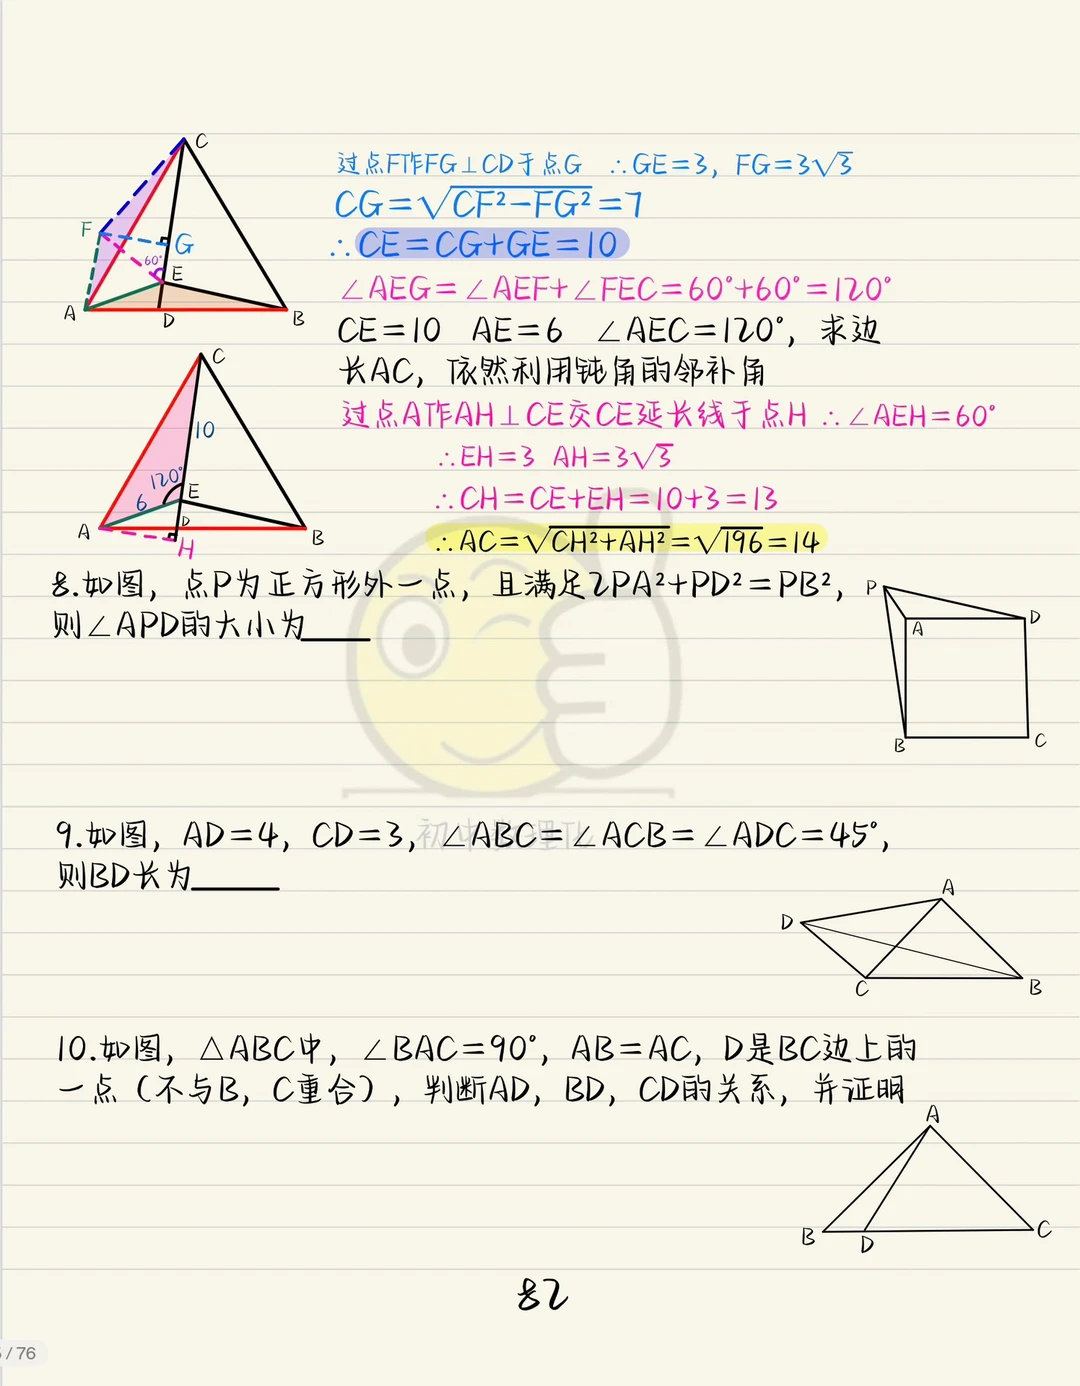 C
F
G
60°
E
A
D
B
过点F作FG⊥CD于点G ∴GE=3, FG=3√3
CG=√CF²-FG²=7
∴CE=CG+GE=10
∠AEG=∠AEF+∠FEC=60°+60°=120°
CE=10 AE=6 ∠AEC=120°, 求边
长AC, 依然利用钝角的邻补角
过点A作AH⊥CE交CE延长线于点H ∴∠AEH=60°
∴EH=3 AH=3√3
∴CH=CE+EH=10+3=13
∴AC=√CH²+AH²=√196=14
C
10
120°
6
E
A
D
B
H
8.如图, 点P为正方形外一点, 且满足2PA²+PD²=PB²,
则∠APD的大小为____
P
A
D
B
C
初中数理化
9.如图, AD=4, CD=3, ∠ABC=∠ACB=∠ADC=45°,
则BD长为____
A
D
C
B
10.如图, △ABC中, ∠BAC=90°, AB=AC, D是BC边上的
一点(不与B, C重合), 判断AD, BD, CD的关系, 并证明
A
B
D
C
82
/ 76